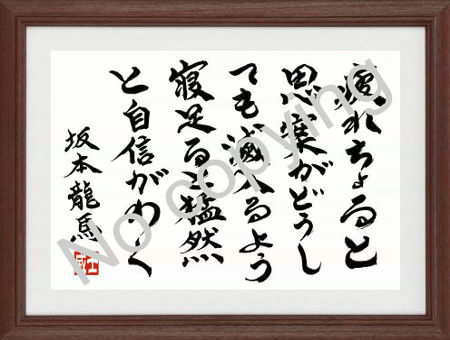 疲れちょると
思案がどうし
ても滅入るよう
寝足ると猛然
と自信がわく
坂本龍馬
No copying